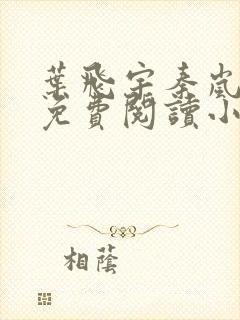 葉飛宇秦嵐
免費閱讀小
相蔭